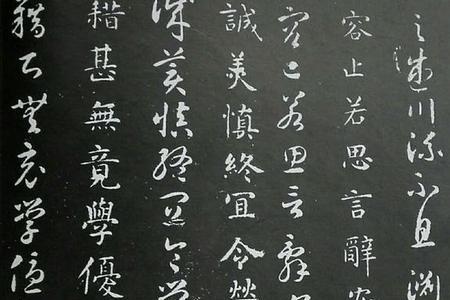 之盛川流不息淵
容止若思言辭安
容止若思言辭安
誠美慎終宜令榮
誠美慎終宜令榮
籍甚無竟學優
籍甚無竟學優